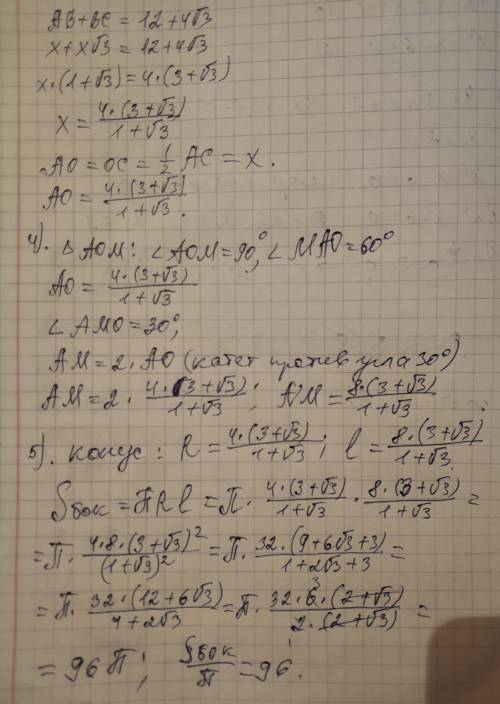 AB+BC = 12+4√3
x+x√3 = 12+4√3
x·(1+√3)=4·(3+√3)
x = 4·(3+√3)/1+√3
AO = OC = 1/2 AC = x.
AO = 4·(3+√3)/1+√3.
4). △ AOM: ∠AOM=90°, ∠MAO=60°
AO = 4·(3+√3)/1+√3
∠AMO=30°,
AM=2·AO (катет против угла 30°)
AM=2·4·(3+√3)/1+√3; AM=8·(3+√3)/1+√3.
5). конус: R=4·(3+√3)/1+√3; l=8·(3+√3)/1+√3.
Sбок=πRl=π·4·(3+√3)/1+√3·8·(3+√3)/1+√3=
=π·4·8·(3+√3)²/(1+√3)²=π·32·(9+6√3+3)/1+2√3+3=
=π·32·(12+6√3)/4+2√3=π·32·6·(2+√3)/2·(2+√3)=
=96π; Sбок/π=96.